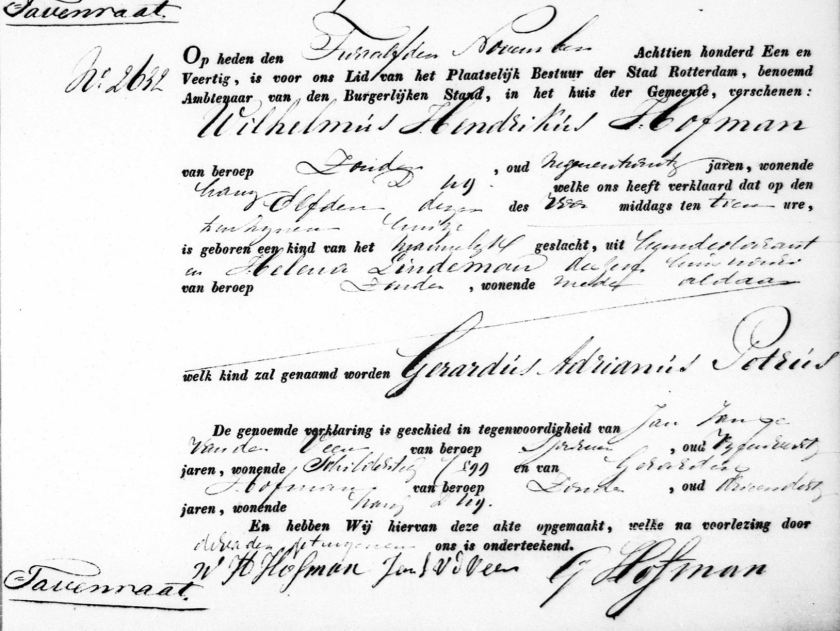 Tavenraat.
Nº 2632
Op heden den Twaalfden November Achttien honderd Een en
Veertig, is voor ons Lid van het Plaatselijk Bestuur der Stad Rotterdam, benoemd
Ambtenaar van den Burgerlijken Stand, in het huis der Gemeente, verschenen:
Wilhelmus Hendrikus Hofman
van beroep Zonder, oud negenentwintig jaren, wonende
welke ons heeft verklaard dat op den
Elfden dezer des middags ten tien ure,
ten zijnen huize
is geboren een kind van het mannelijk geslacht, uit
en Helena Lindeman deszelfs huisvrouw
van beroep Zonder, wonende mede aldaar
welk kind zal genaamd worden Gerardus Adrianus Petrus
De genoemde verklaring is geschied in tegenwoordigheid van Jan
van der Veen van beroep, oud
jaren, wonende en van Gerardus
Hofman van beroep Zonder, oud
jaren, wonende
En hebben Wij hiervan deze akte opgemaakt, welke na voorlezing door
ons is onderteekend.
W H Hofman Jan J v d Veen G Hofman
Tavenraat.